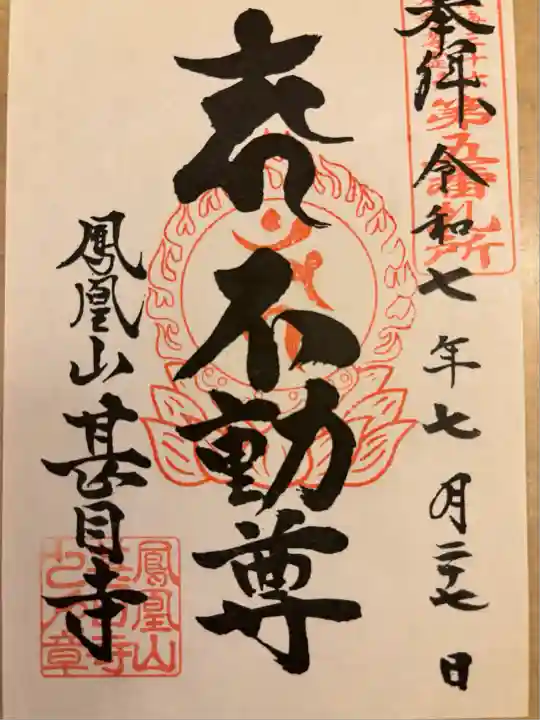 奉拝 令和七年七月二十七日
第五番札所
不動尊
鳳凰山 甚目寺
鳳凰山
甚目寺
之章